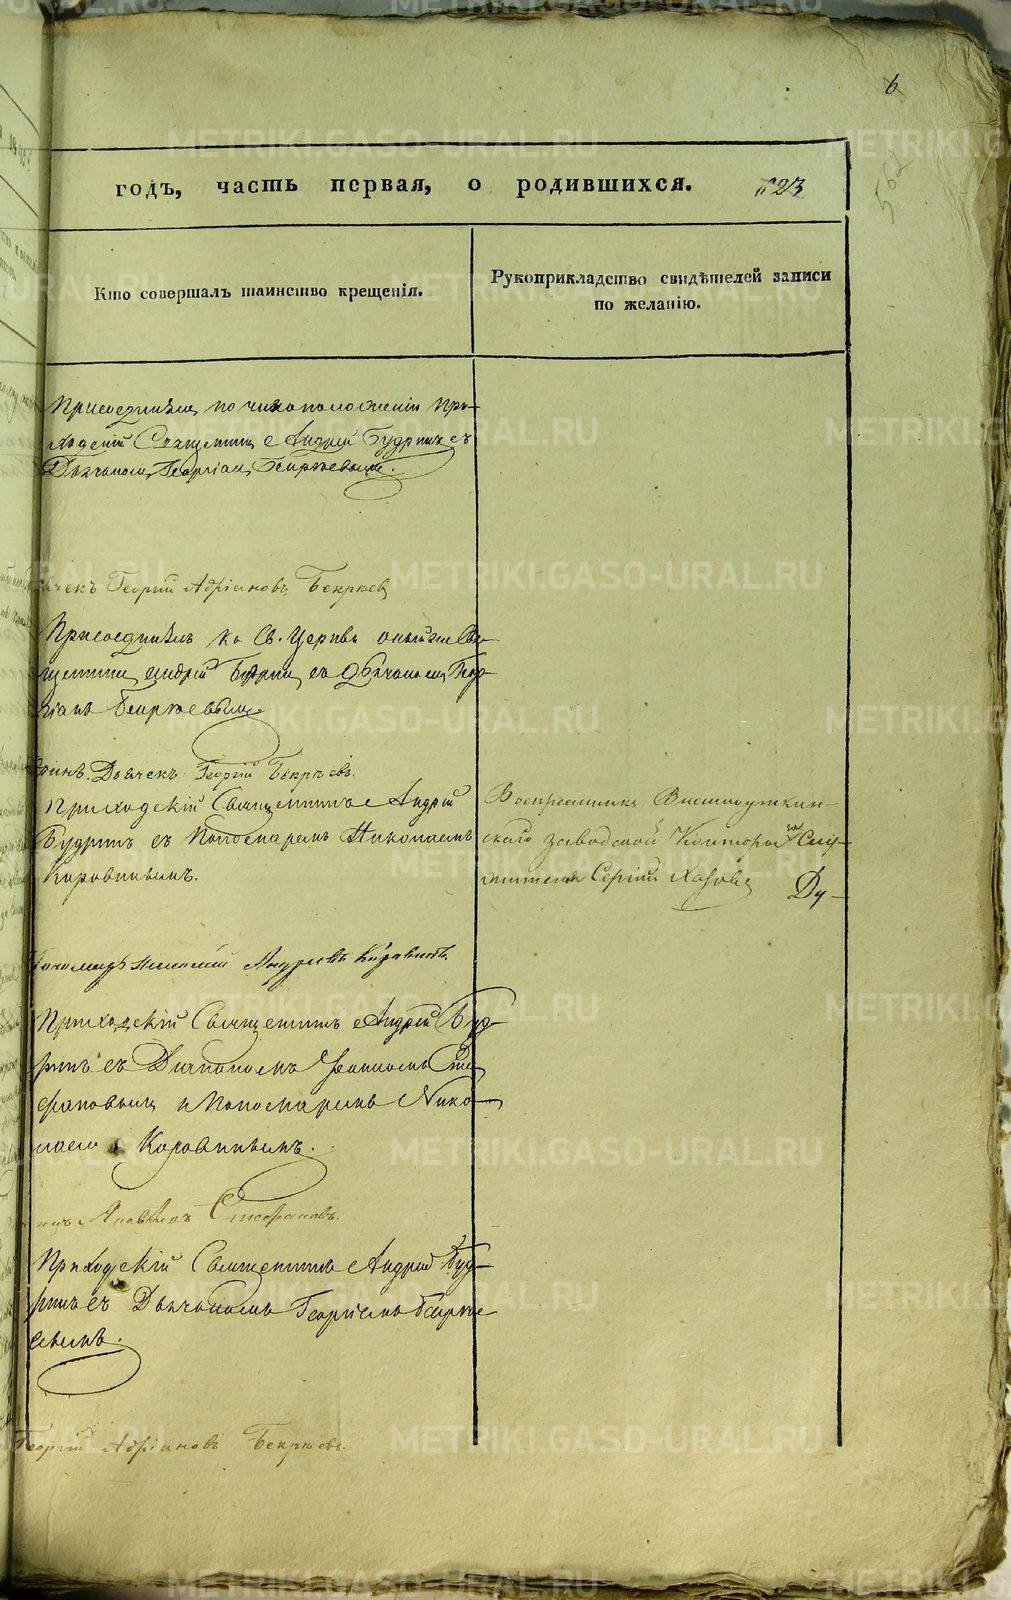 6
562
годъ, часть первая, о родившихся.
623
Кто совершалъ таинство крещенія.
Рукоприкладство свидѣтелей записи
по желанію.
Присоединилъ по чиноположенію При-
ходскій Священникъ Андрей Будринъ съ
Дьячкомъ Георгіемъ Бекряевымъ.
Георгій Адріановъ Бекряев
Присоединилъ къ Св. Церкви онъ же Свя-
щенникъ Андрей Будринъ съ Дьячкомъ Геор-
гіемъ Бекряевымъ.
Дьячекъ Георгій Бекряевъ.
Приходскій Священникъ Андрей
Будринъ съ Пономаремъ Николаемъ
Коровинымъ.
Воспреемникъ Висимоуткин-
скаго заводской Конторы Слу-
житель Сергій
Ду-
Пономарь Николай Андреевъ Коровинъ.
Приходскій Священникъ Андрей Буд-
ринъ съ Діакономъ Сте-
фановымъ и Пономаремъ Нико-
лаемъ Коровинымъ.
Стефановъ.
Приходскій Священникъ Андрей Буд-
ринъ съ Дьячкомъ Георгіемъ Бекряе-
вымъ.
Георгій Адріановъ Бекряевъ.
METRIKI.GASO-URAL.RU